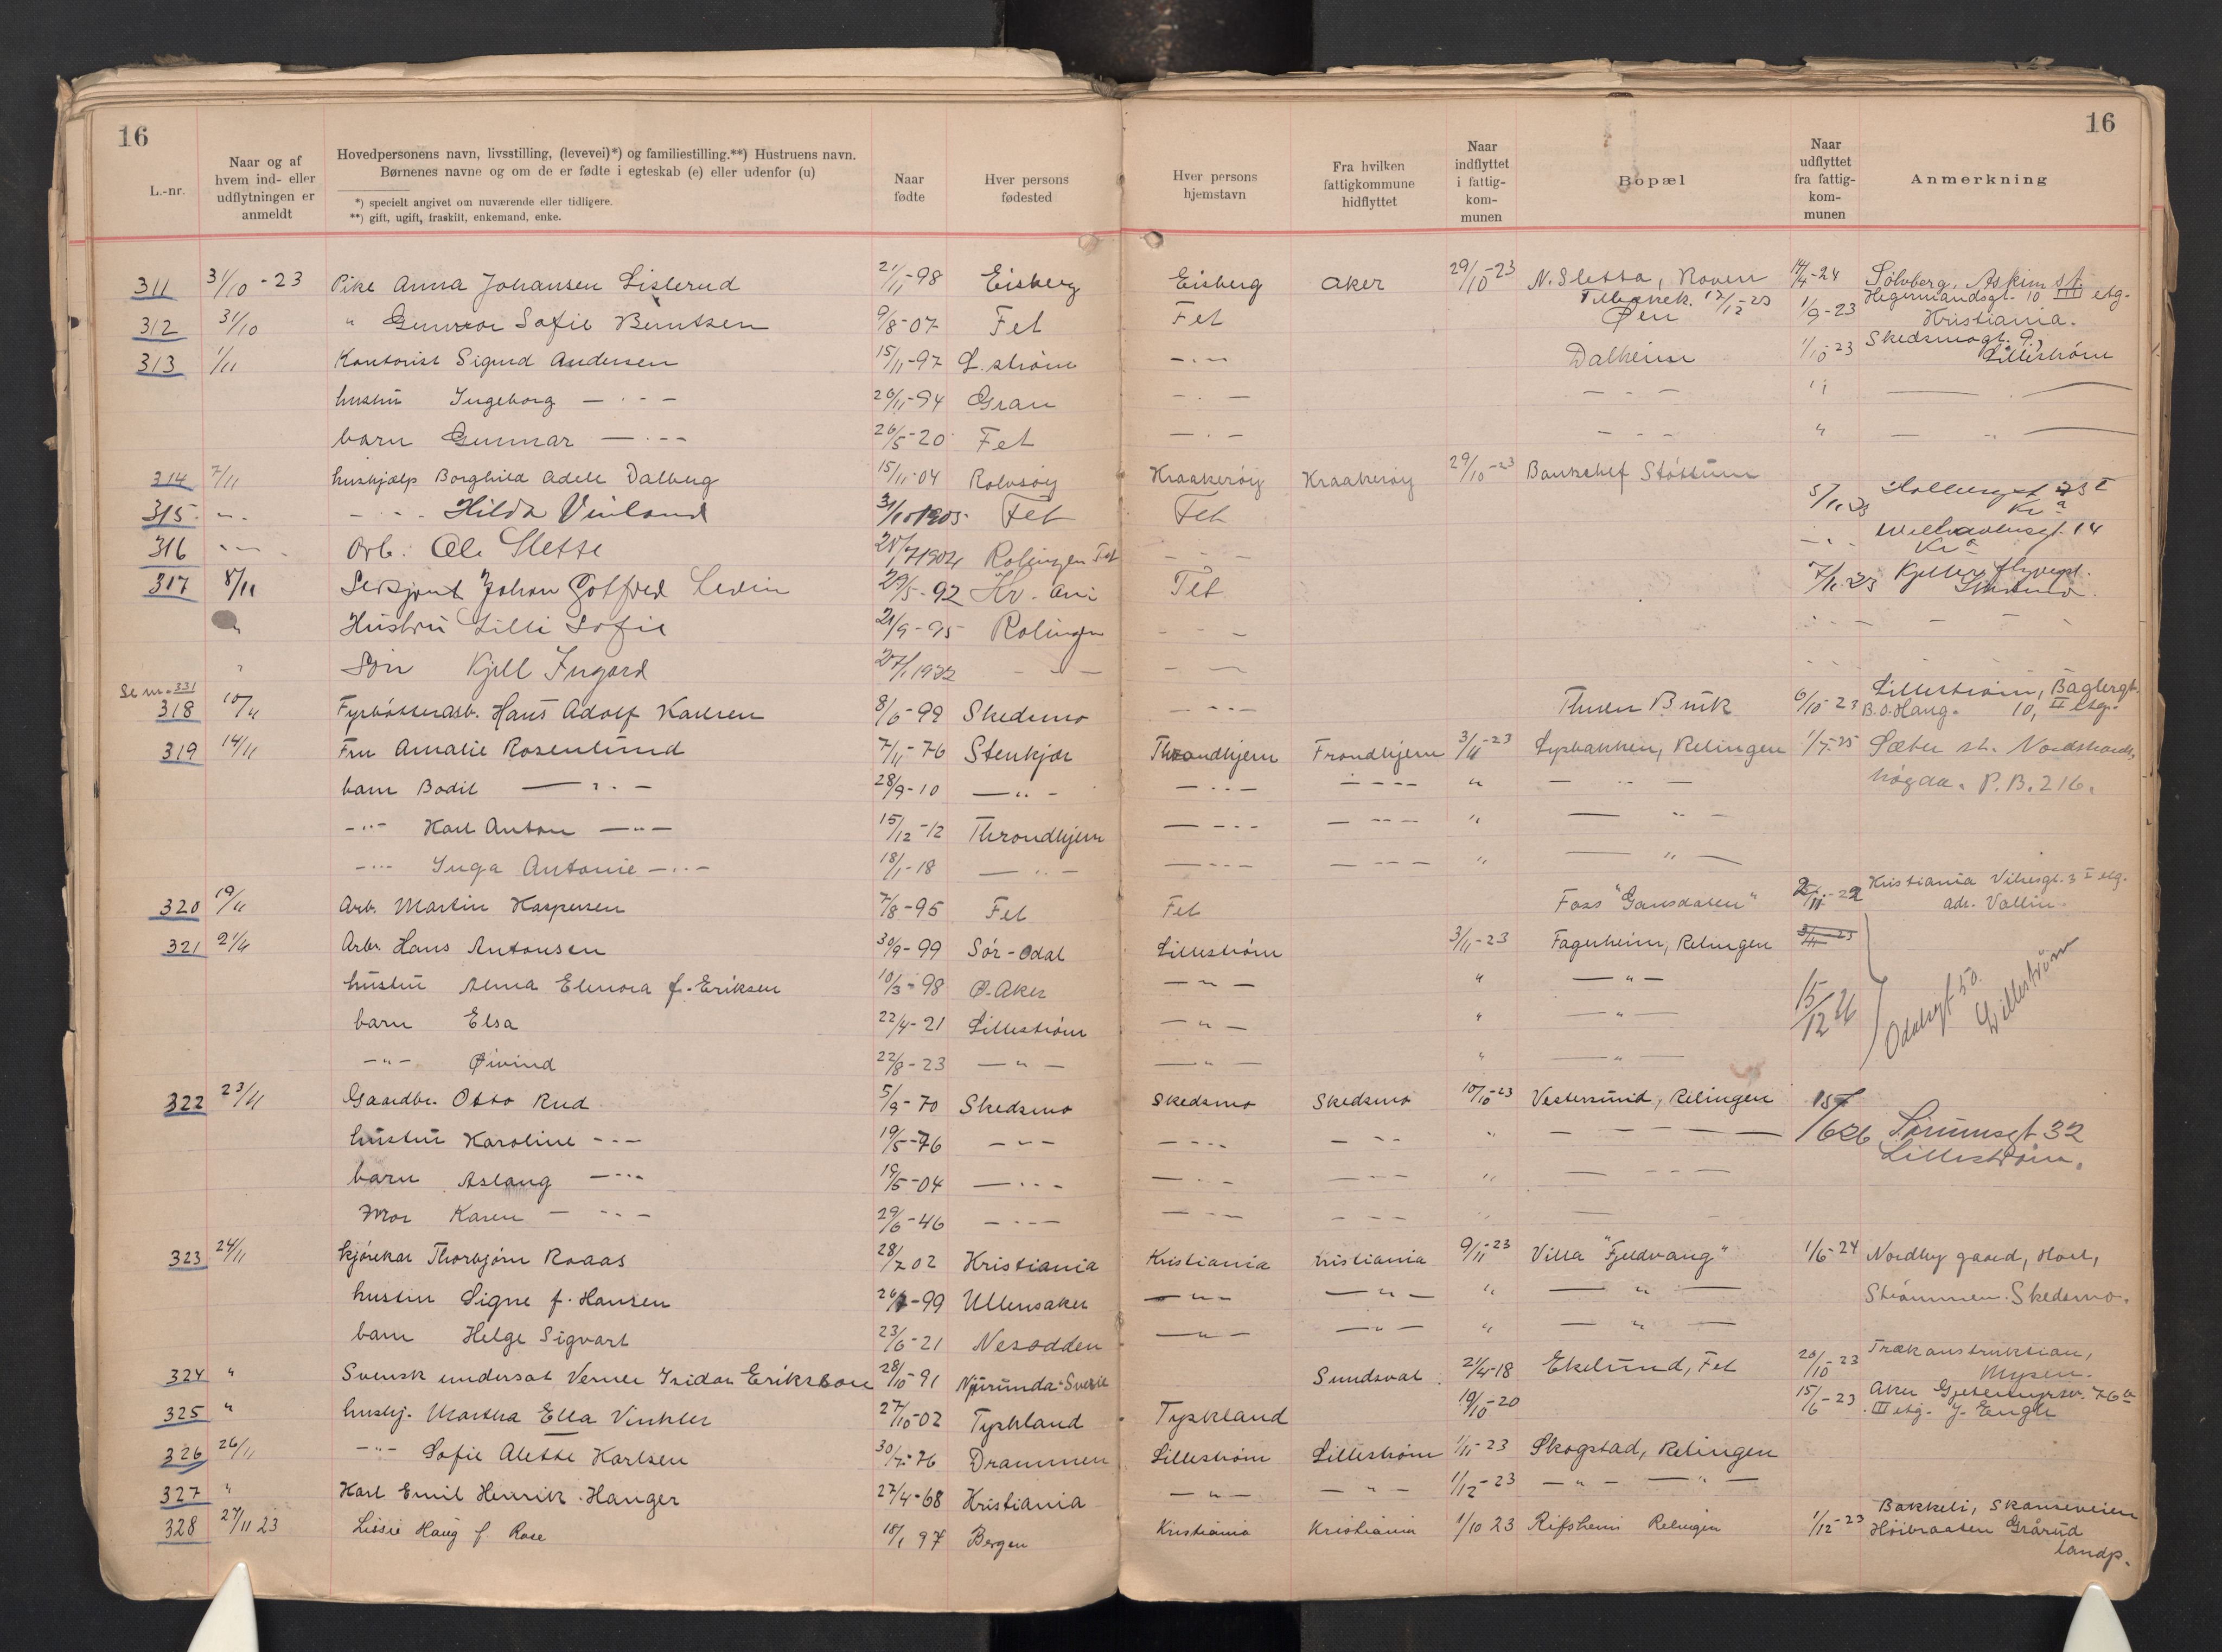 16
16
L.-nr.
Naar og af hvem ind- eller udflytningen er anmeldt
Hovedpersonens navn, livsstilling, (levevei)*) og familiestilling.**) Hustruens navn.
Børnenes navne og om de er fødte i egteskab (e) eller udenfor (u)
*) specielt angivet om nuværende eller tidligere.
**) gift, ugift, fraskilt, enkemand, enke.
Naar fødte
Hver persons fødested
Hver persons hjemstavn
Fra hvilken fattigkommune hidflyttet
Naar indflyttet i fattig-kom-munen
Bopæl
Naar udflyttet fra fattig-kom-munen
Anmerkning
311 31/10-23 Pike Anna Johansen Lislerud 21/11-98 Eisberg Eisberg Aker 29/10-23 N. Sletta, Roven 14/4-24 Sølvberg, Askim st.
Tilbakek. 12/12-23 Hegermandsgt. 10 III etg.
312 31/10 " Gunvor Sofie Berntsen 9/8-07 Fet Fet Øen 1/9-23 Kristiania.
313 1/11 Kontorist Sigurd Andersen 15/11-97 L. strøm - " - Dalheim 1/10-23 Skedsmogt. 9, Lillestrøm
hustru Ingeborg - " - 26/11-94 Gran - " - - " - "
barn Gunnar - " - 26/5-20 Fet - " - - " - " - " -
314 7/11 hushjælp Borghild Adele Dalberg 15/11-04 Rolvsøy Kraakerøy Kraakerøy 29/10-23 Bankchef Støttum
315 - " - - " - Hilda Vinland 31/10 1905 Fet Fet 5/11.23 Holbergsgt 23 I Kr.a
316 - " - Arb. Ole Slette 28/7 1904 Relingen Fet - " - - " - Welhavensgt. 14 Kr.a
317 8/11 Sersjant Johan Gotfred Levin 29/5-92 Kr. ani Fet 7/11.23 Kjeller flyvepl.
" Hustru Lilli Sofie 21/9-95 Relingen - " - - " -
" Søn Kjell Ingard 27/1 1922 - " - - " -
Se nr. 331
318 10/11 Fyrbøtterarb. Hans Adolf Karlsen 8/6-99 Skedsmo - " - Thuen Bruk 6/10-23 Lillestrøm, Baglergt.
B.O. Haug. 10, II etg.
319 14/11 Fru Amalie Rosenlund 7/11-76 Stenkjær Throndhjem Trondhjem 3/11-23 Lysbakken, Relingen 1/5-25 Sæter st. Nordstrands,
barn Bodil - " - 28/9-10 - " - - " - - " - " - " - høgda. P.B. 216.
- " - Karl Anton - " - 15/12-12 Throndhjem - " - - " - " - " -
- " - Inga Antonie - " - 18/1-18 - " - - " - - " - " - " -
320 19/11 Arb. Martin Kaspersen 7/8-95 Fet Fet Foss "Gansdalen" 2/11-22 Kristiania Vibesgt. 3 I etg.
adr. Vallin.
321 21/11 Arb. Hans Antonsen 30/9-99 Sør-Odal Lillestrøm 3/11-23 Fagerheim, Relingen 3/11-23
hustru Anna Elenora f. Eriksen 10/3-98 Ø. Aker - " - " - " -
barn Elsa 22/4-21 Lillestrøm - " - " - " - 15/12 26 Odalsgt 50. Lillestrøm
- " - Øivind 22/8-23 - " - - " - " - " -
322 23/11 Gaardbr. Otto Rud 5/9-70 Skedsmo Skedsmo Skedsmo 10/10-23 Vestersund, Relingen 15/6 26 Sørumsgt 32
hustru Karoline - " - 19/5-76 - " - - " - - " - " - " - Lillestrøm.
barn Aslaug - " - 19/5-04 - " - - " - - " - " - " -
Mor Karen - " - 29/6-46 - " - - " - - " - " -
323 24/11 kjørekar Thorbjørn Raaas 28/7 02 Kristiania Kristiania Kristiania 9/11-23 Villa "Fjeldvang" 1/6-24 Nordby gaard,
hustru Signe f. Hansen 26/1-99 Ullensaker - " - - " - " - " - Strømmen. Skedsmo.
barn Helge Sigvart 23/6-21 Nesodden - " - - " - " - " -
324 " Svensk undersot Verner Isidor Eriksson 28/10-91 Njurunda-Sverie Sundsval 21/4-18 Ekelund, Fet 20/10-23 Trækonstruktion, Mysen.
325 " hushj. Martha Ella Vinkler 27/10-02 Tyskland Tyskland 19/10-20 15/6-23 Aker Gjetemyrsv. 76 b
III etg. J. Engh
326 26/11 - " - Sofie Alette Karlsen 30/7-76 Drammen Lillestrøm Lillestrøm 1/11-23 Skogstad, Relingen
327 " Karl Emil Henrik Hanger 27/4-68 Kristiania - " - - " - 1/12-23 - " - - " -
328 27/11 23 Lissie Haug f. Rose 18/1 97 Bergen Kristiania Kristiania 1/10 23 Rifsheim Relingen 1/12-23 Bakkeli, Skanseveien
Høibraaten Grårud
landp.